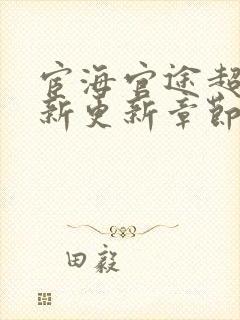 宦海官途超
新更新章节
田毅